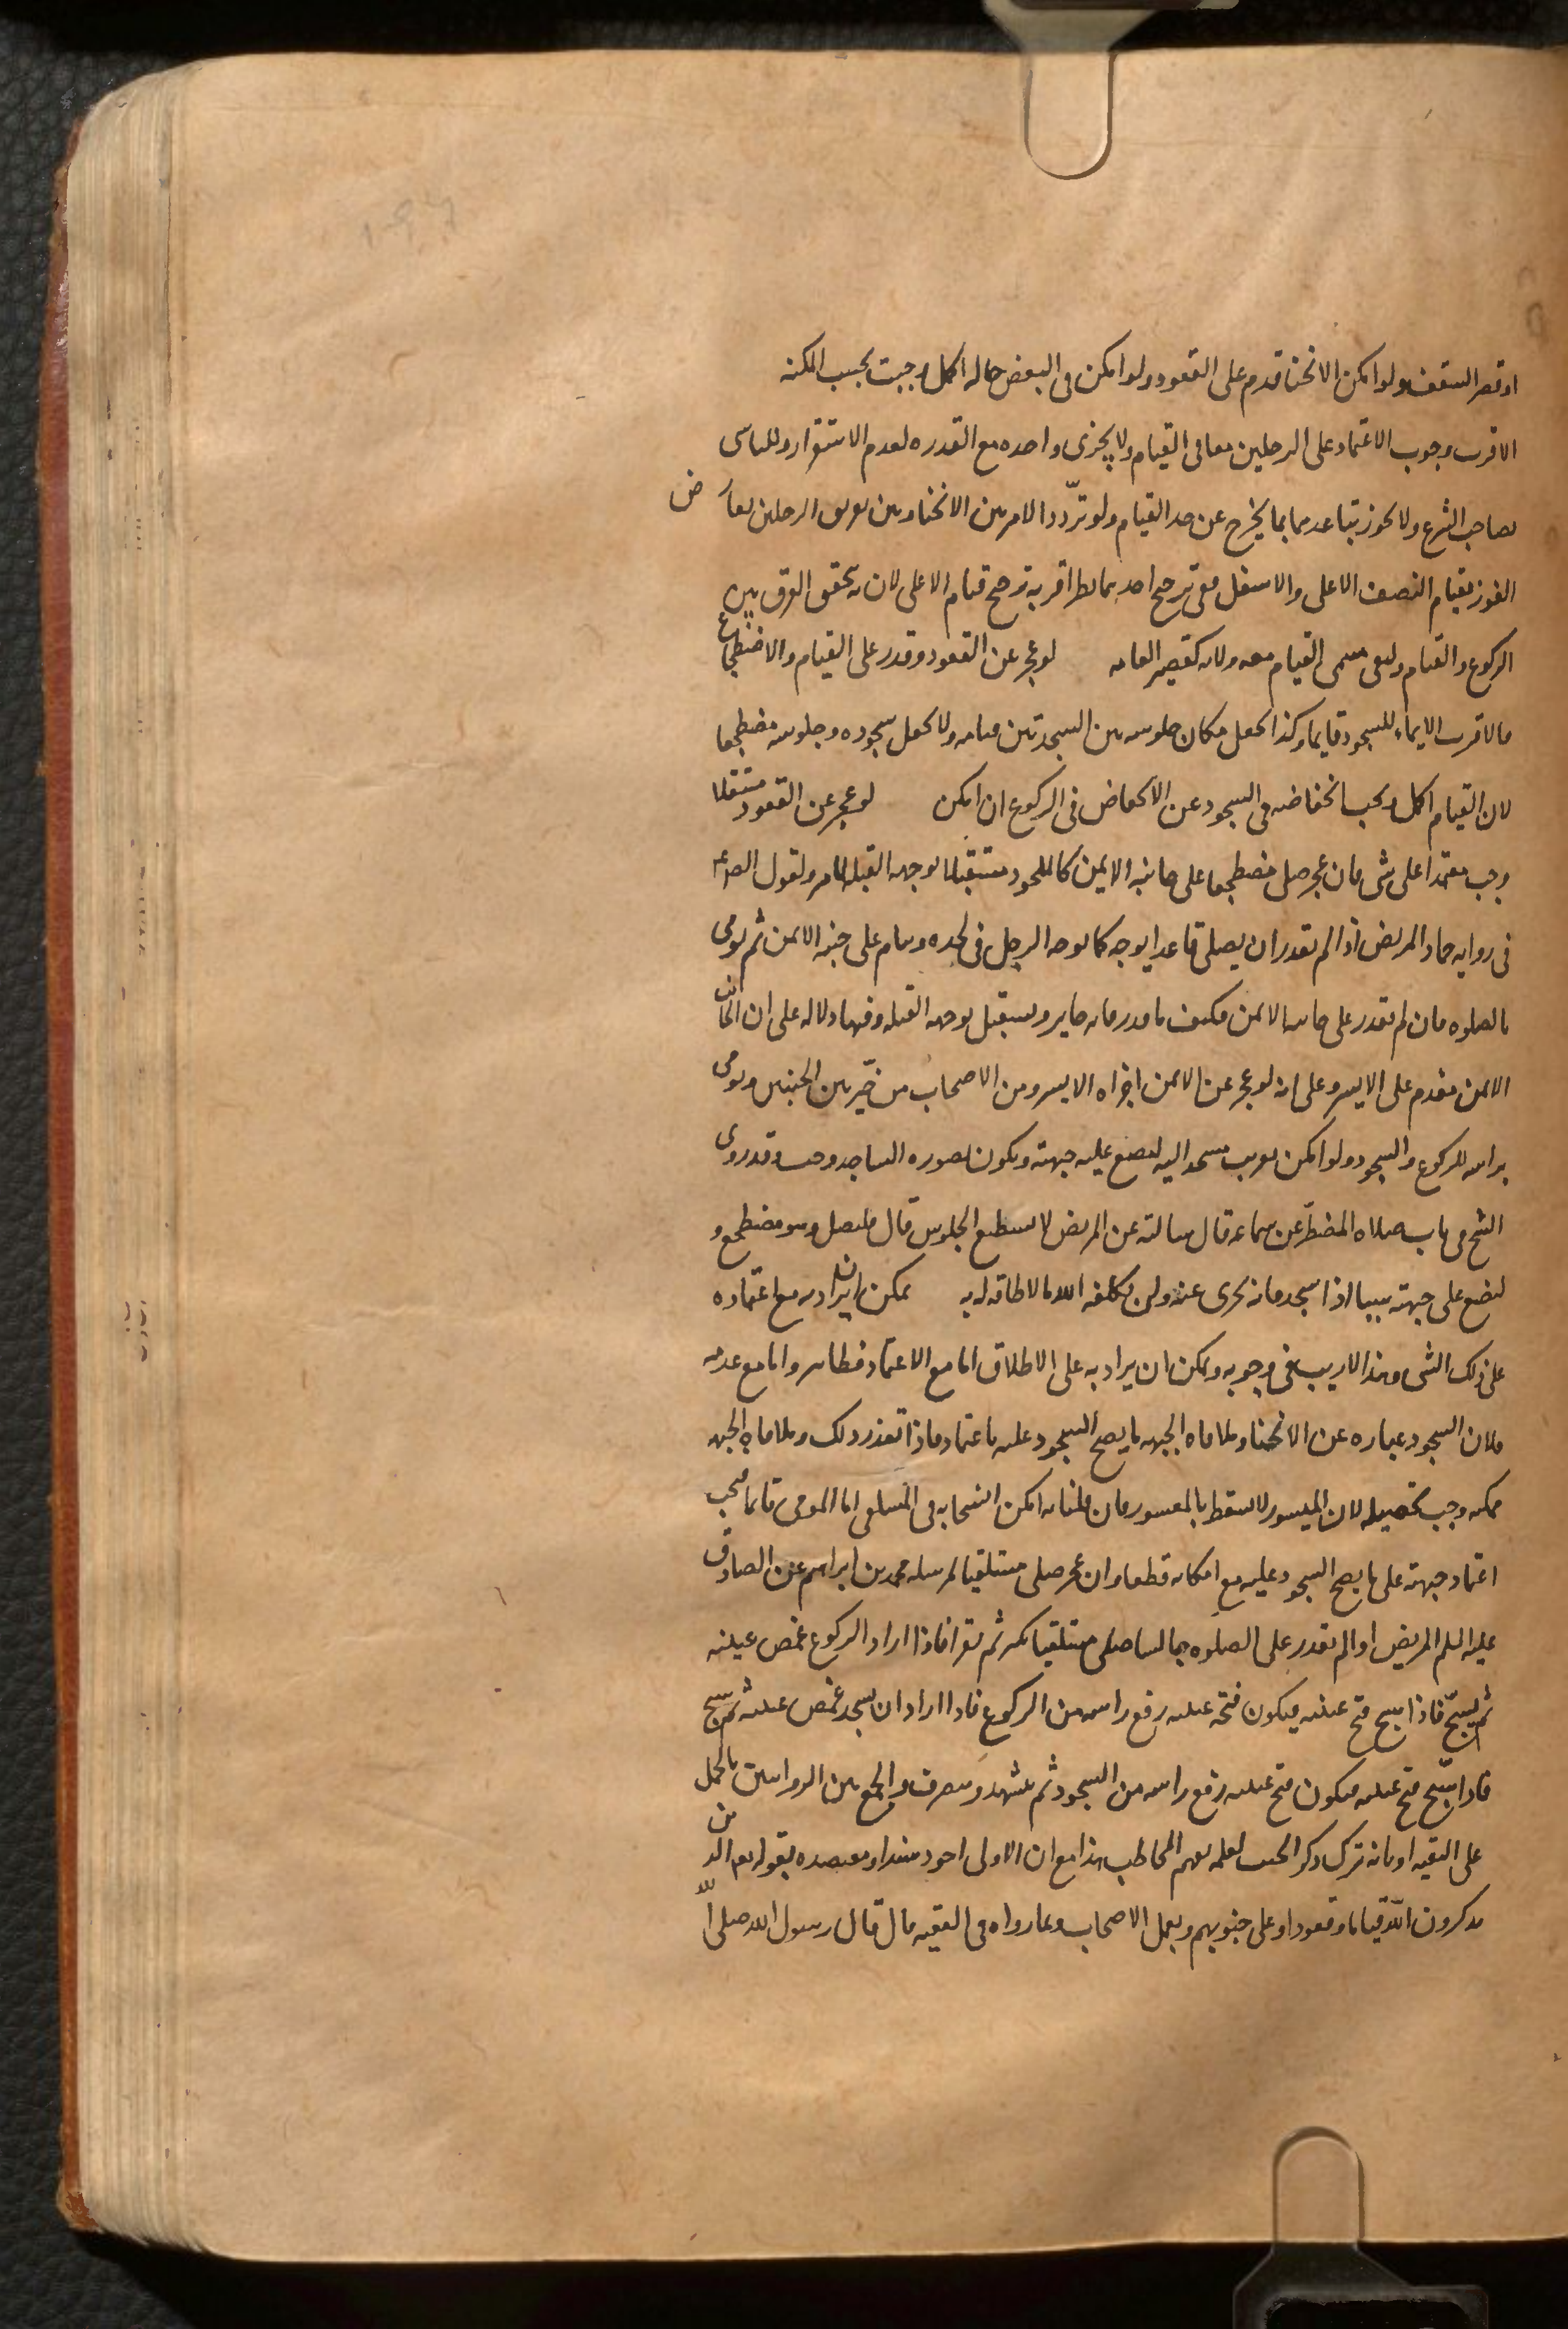 او قصر السقف ولو امكن الانحنا قدم على القعود ولو امكن فى البعض حاله اكمل وجبت بحسب المكنه
الاقرب وجوب الاعتماد على الرجلين معا فى القيام ولا يجزى واحده مع القدره لعدم الاستقرار وللتاسى
بصاحب الشرع ولا يجوز تباعدهما بما يخرج عن حد القيام ولو تردد الامر بين الانحنا وبين تفريق الرجلين تعارض
الفوز بقيام النصف الاعلى والاسفل ففى ترجيح احدهما نظر اقربه ترجيح قيام الاعلى لان به يتحقق الفرق بين
الركوع والقيام ولبقى مسمى القيام معه ولانه كقصير القامه لو عجز عن القعود وقدر على القيام والاضطجاع
فالاقرب الايماء للسجود قايما وكذا يجعل مكان جلوسه بين السجدتين قيامه ولا يجعل سجوده وجلوسه مضطجعا
لان القيام اكمل ويجب انخفاضه فى السجود عن الانخفاض فى الركوع ان امكن لو عجز عن القعود مستقلا
وجب معتمدا على شى فان عجز صلى مضطجعا على جانبه الايمن كالملحود مستقبلا بوجهه القبله لما مر ولقول الص ع
فى روايه حماد المريض اذا لم يقدر ان يصلى قاعدا يوجه كما يوجه الرجل فى لحده وينام على جنبه الايمن ثم يومى
بالصلوه فان لم يقدر على جانبه الايمن فكيف ما قدر فانه جايز ويستقبل بوجهه القبله وفيها دلاله على ان الجانب
الايمن مقدم على الايسر وعلى انه لو عجز عن الايمن اجزاه الايسر ومن الاصحاب من خير بين الجنبين ويومى
براسه للركوع والسجود ولو امكن تقريب مسجد اليه ليضع عليه جبهته ويكون بصوره الساجد وجب وقد روى
الشيخ فى باب صلاه المضطر عن سماعه قال سالته عن المريض لا يستطيع الجلوس قال فليصل وهو مضطجع و
ليضع على جبهته شيا اذا سجد فانه يجزى عنه ولن يكلفه الله ما لا طاقه له به يمكن ان يراد به مع اعتماده
على ذلك الشى وهذا لا ريب فى وجوبه ويمكن ان يراد به على الاطلاق اما مع الاعتماد فظاهر واما مع عدمه
فلان السجود عباره عن الانحنا وملاقاه الجبهه ما يصح السجود عليه باعتماد فاذا تعذر ذلك وملاقاه الجبهه
ممكنه وجب تحصيله لان الميسور لا يسقط بالمعسور فان قلنا به امكن انسحابه فى المستلقى اما المومى قايما فيجب
اعتماد جبهته على ما يصح السجود عليه مع امكانه قطعا وان عجز صلى مستلقيا لمرسله محمد بن ابراهيم عن الصادق
عليه السلم المريض اذا لم يقدر على الصلوه جالسا صلى مستلقيا يكبر ثم يقرا فاذا اراد الركوع غمض عينيه
ثم يسبح فاذا سبح فتح عينيه فيكون فتحه عينيه رفع راسه من الركوع فاذا اراد ان يسجد غمض عينيه ثم يسبح
فاذا سبح فتح عينيه فيكون فتح عينيه رفع راسه من السجود ثم يتشهد وينصرف والجمع بين الروايتين بالحمل
على التقيه او بانه ترك ذكر الجنب لعلمه بفهم المخاطب هذا مع ان الاولى اجود سندا ومعتضده بقوله تع الذين
يذكرون الله قياما وقعودا وعلى جنوبهم وبعمل الاصحاب وبما رواه فى الفقيه قال قال رسول الله صلى الله